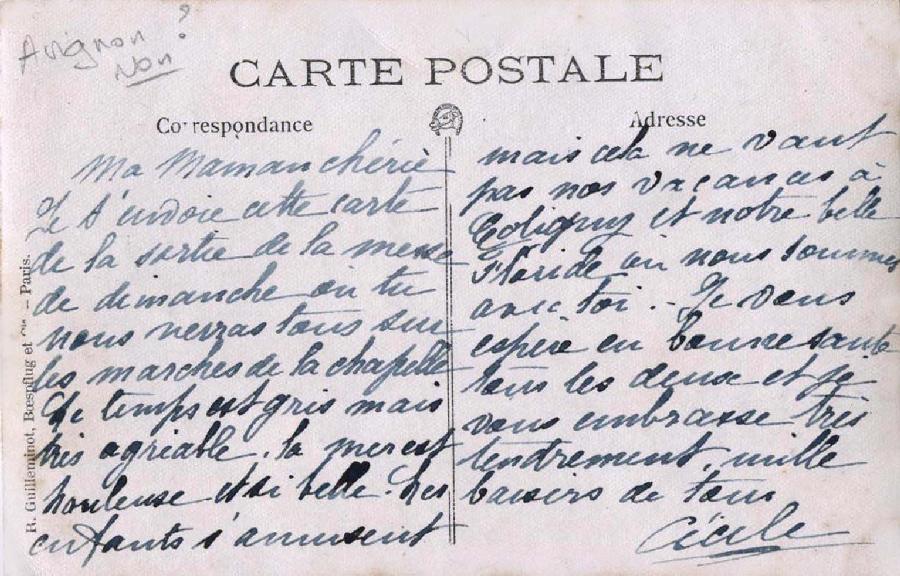 Avignon ?
Non
CARTE POSTALE
Correspondance
Adresse
Ma Maman chérie
Je t'envoie cette carte
de la sortie de la messe
de dimanche où tu
nous verras tous sur
les marches de la chapelle
Le temps est gris mais
très agréable. la mer est
houleuse et si belle. Les
enfants s'amusent
mais cela ne vaut
pas nos vacances à
et notre belle
Floride où nous sommes
avec toi. - Je vous
espère en bonne santé
tous les deux et je
vous embrasse très
tendrement, mille
baisers de tous
Cécile
R. Guilleminot, Bœspflug et Cie - Paris.